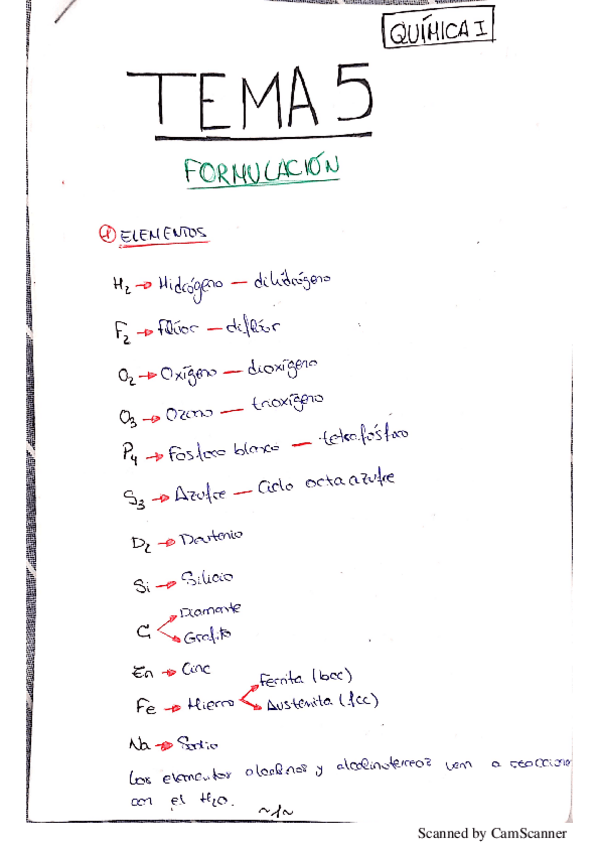 QUÍMICA I
TEMA 5
FORMULACIÓN
1 ELEMENTOS
H2 → Hidrógeno — dihidrógeno
F2 → Flúor — diflúor
O2 → Oxígeno — dioxígeno
O3 → Ozono — trioxígeno
P4 → Fósforo blanco — tetrafósforo
S3 → Azufre — Ciclo octaazufre
D2 → Deuterio
Si → Silicio
C Diamante
Grafito
Zn → Cinc
Fe → Hierro Ferrita (bcc)
Austenita (fcc)
Na → Sodio
Los elementos alcalinos y alcalinoterreos van a reacciona
con el H2O.
~1~
Scanned by CamScanner